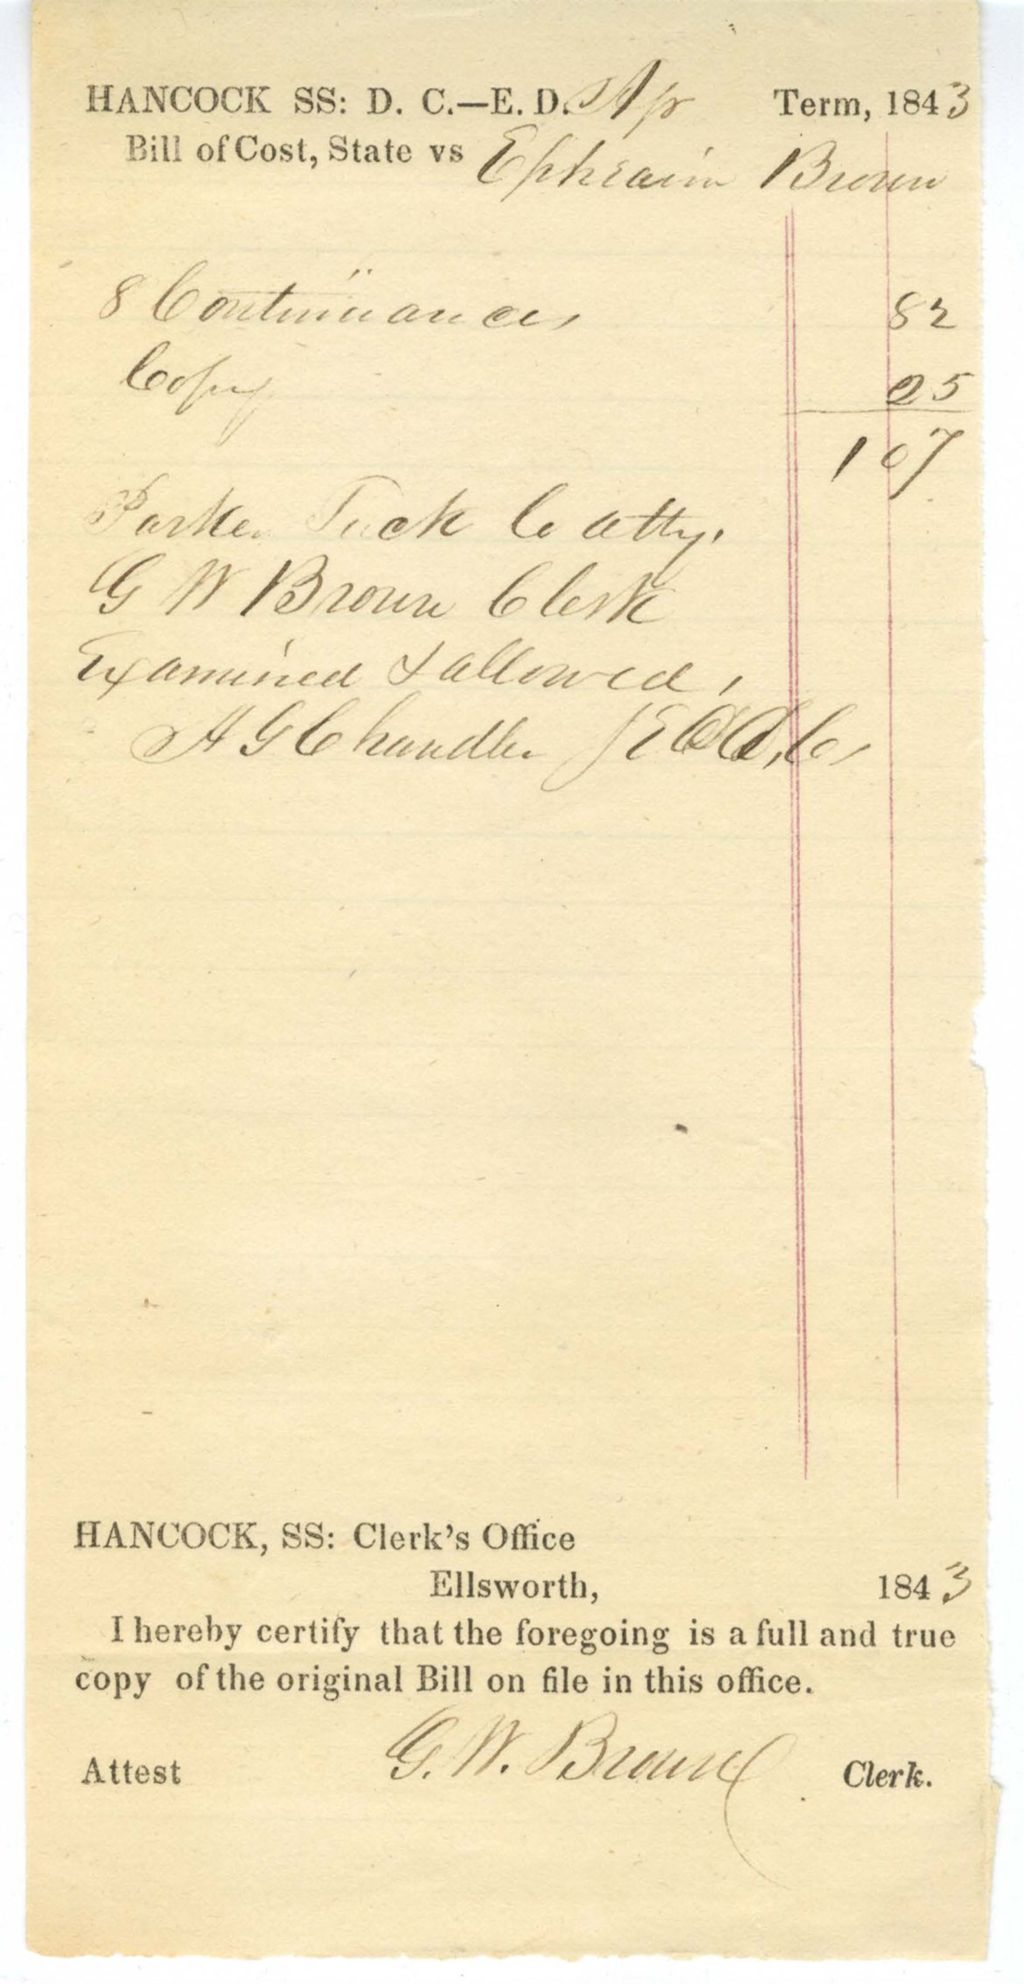 HANCOCK SS: D. C.—E. D. Ap Term, 1843
Bill of Cost, State vs Ephraim Brown
8 Continuances 82
Copy 25
1 07
Parker Tuck Co atty.
G W Brown Clerk
Examined & allowed,
A G Chandler
HANCOCK, SS: Clerk's Office
Ellsworth, 1843
I hereby certify that the foregoing is a full and true
copy of the original Bill on file in this office.
Attest G. W. Brown Clerk.